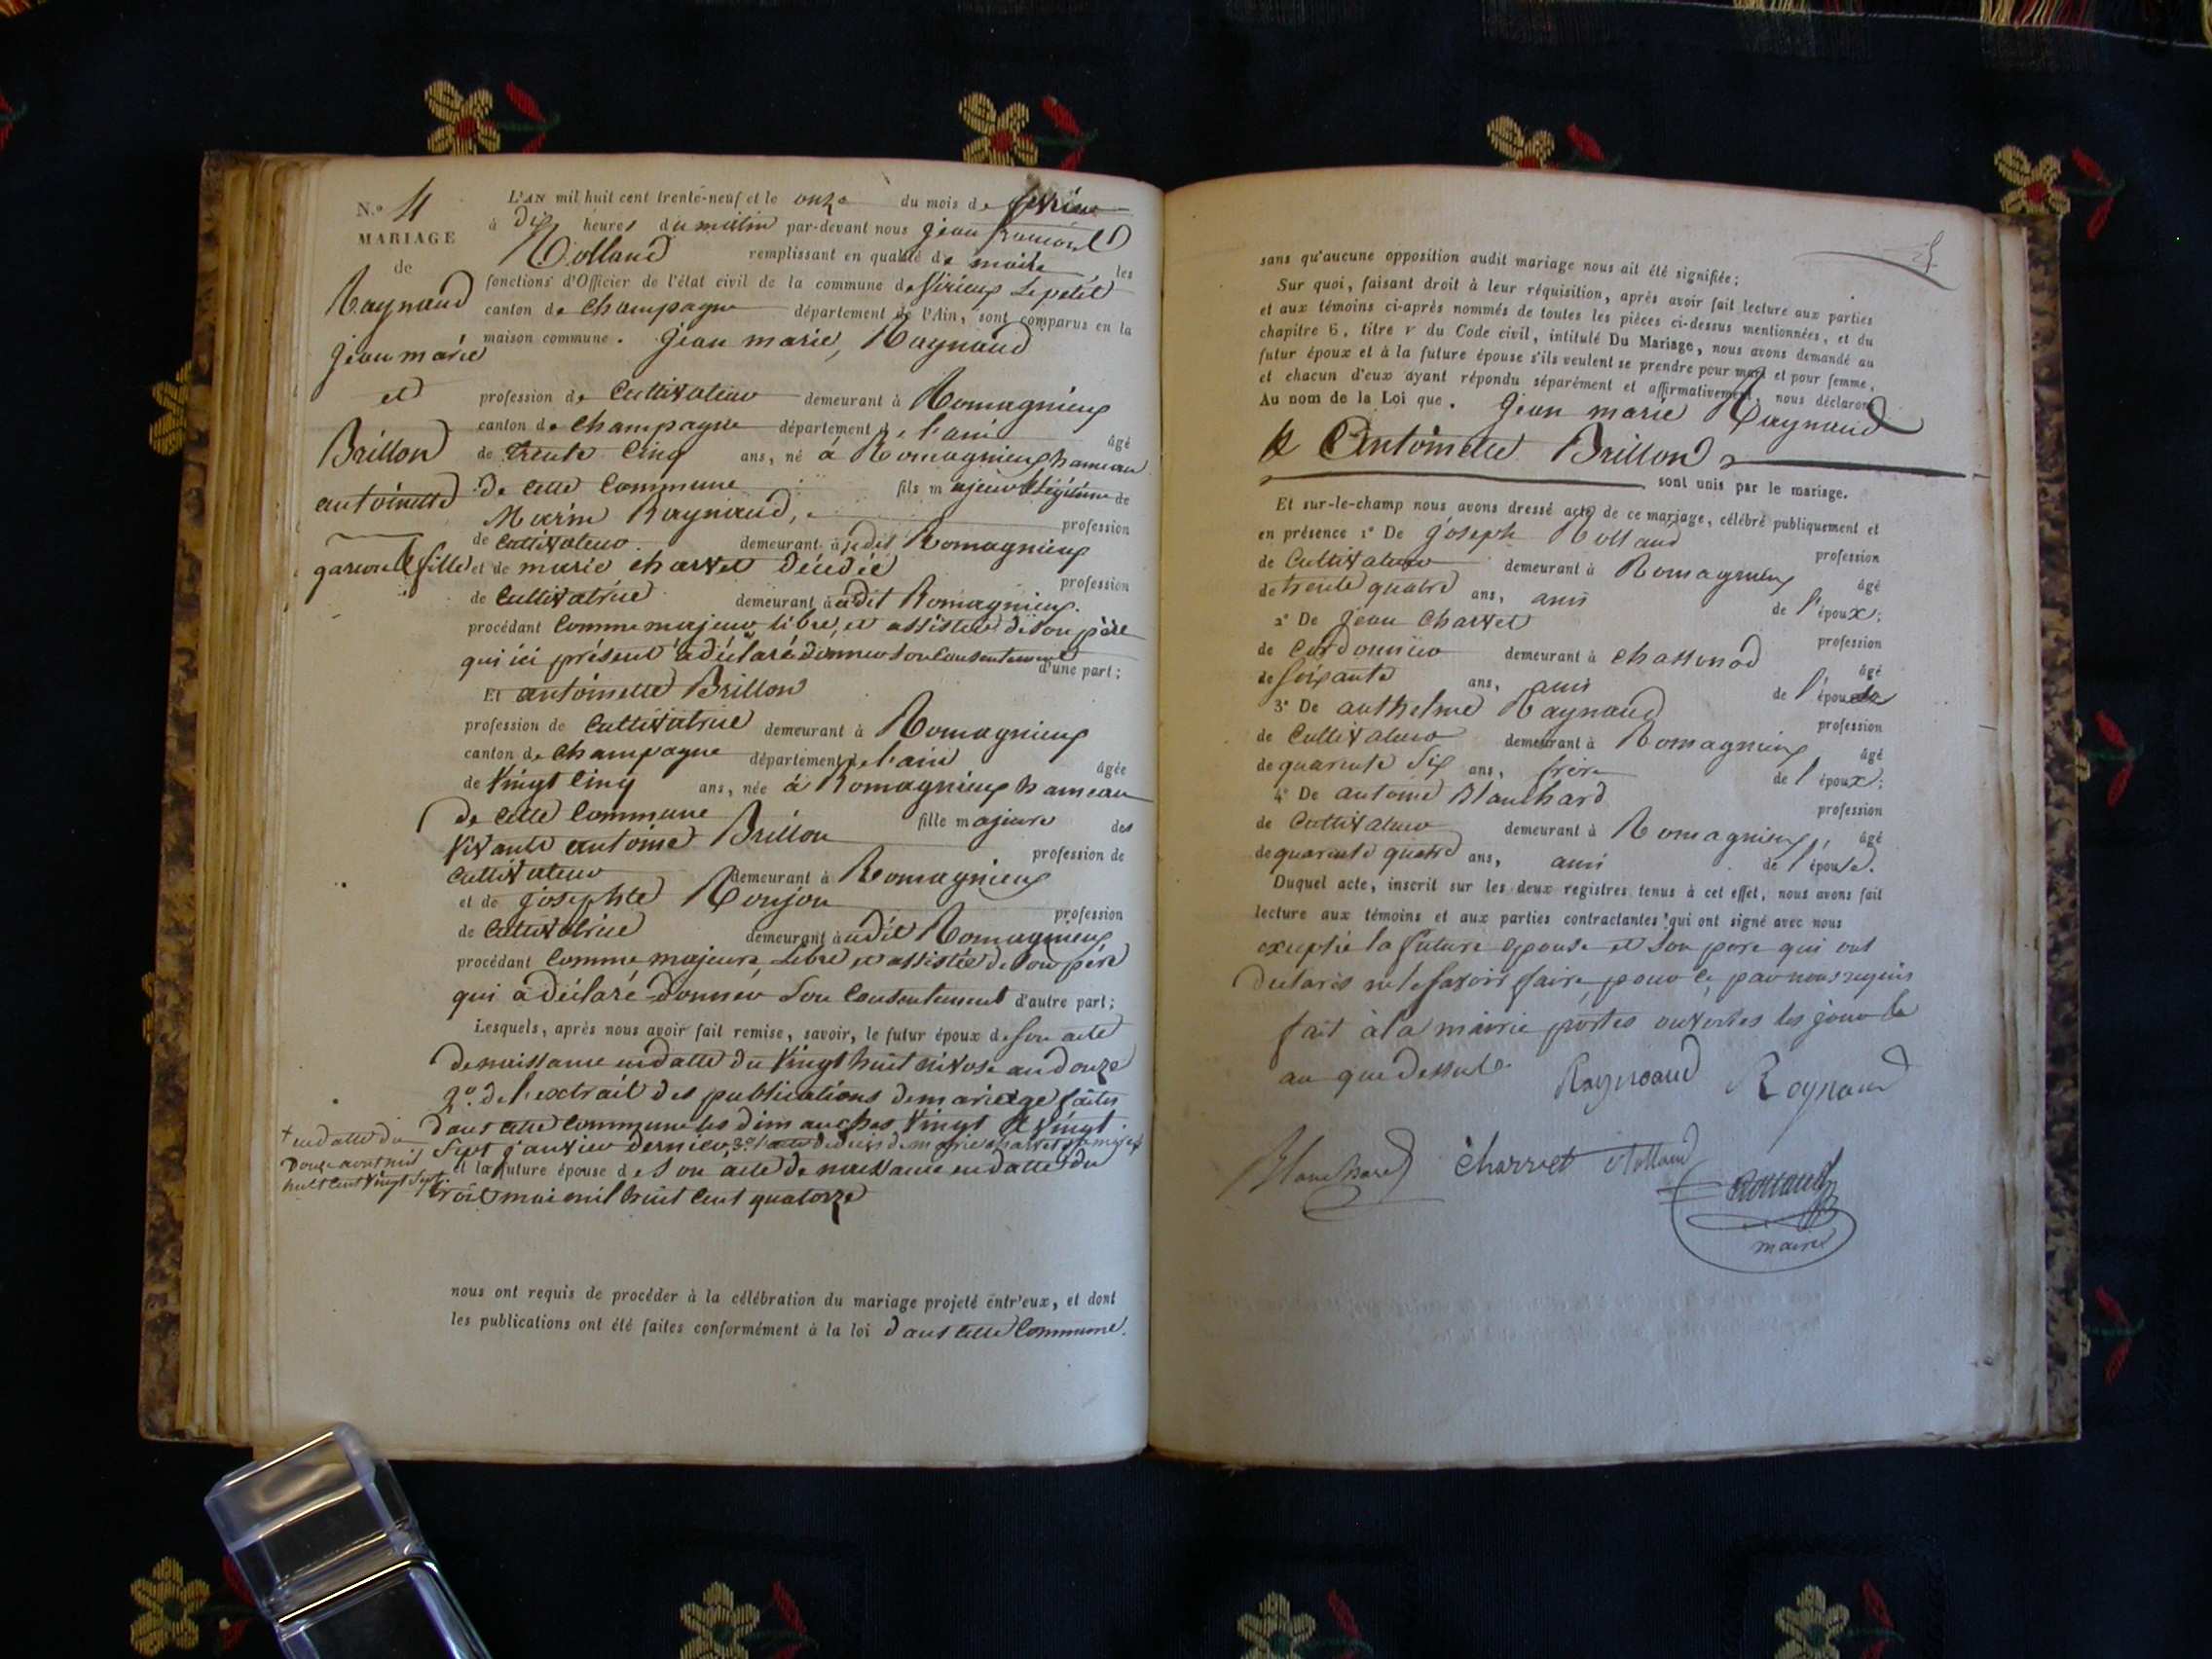 N.º 4
MARIAGE
de
Raynaud
jean marie
et
Brillon
antoinette
garçon & fille
L'AN mil huit cent trente-neuf et le onze du mois de février
à dix heures du matin par-devant nous jean
Rolland remplissant en qualité de maire les
fonctions d'Officier de l'état civil de la commune de Virieux Le petit
canton de champagne département de l'Ain, sont comparus en la
maison commune. jean marie, Raynaud
profession de Cultivateur demeurant à Romagnieux
canton de champagne département de l'ain âgé
de trente Cinq ans, né à Romagnieux hameau
de cette Commune fils majeur & légitime de
Marin Raynaud, profession
de Cultivateur demeurant à jedit Romagnieux
et de marie charvet décédée profession
de Cultivatrice demeurant audit Romagnieux.
procédant Comme majeur libre, et assisté de son père
qui ici présent a déclaré donner son Consentement
d'une part;
Et antoinette Brillon
profession de Cultivatrice demeurant à Romagnieux
canton de champagne département de l'ain âgée
de Vingt Cinq ans, née à Romagnieux hameau
de cette Commune fille majeure des
vivants antoine Brillon profession de
Cultivateur demeurant à Romagnieux
et de josephte Roujou profession
de Cultivatrice demeurant audit Romagnieux
procédant Comme majeure, Libre et assistée de son père
qui a déclaré donner Son Consentement d'autre part;
Lesquels, après nous avoir fait remise, savoir, le futur époux de Son acte
de naissance en datte du Vingt huit nivose an douze
2º. de l'extrait des publications de mariage faites
dans cette Commune les dimanches Vingt & Vingt
Sept janvier dernier, 3º l'acte de décès de marie charvet sa mère +
+ en datte du
Douze avout mil
huit Cent Vingt Sept.
et la future épouse de Son acte de naissance en datte du
trois mai mil huit Cent quatorze
nous ont requis de procéder à la célébration du mariage projeté entr'eux, et dont
les publications ont été faites conformément à la loi dans cette Commune.
sans qu'aucune opposition audit mariage nous ait été signifiée;
Sur quoi, faisant droit à leur réquisition, après avoir fait lecture aux parties
et aux témoins ci-après nommés de toutes les pièces ci-dessus mentionnées, et du
chapitre 6, titre V du Code civil, intitulé Du Mariage, nous avons demandé au
futur époux et à la future épouse s'ils veulent se prendre pour mari et pour femme,
et chacun d'eux ayant répondu séparément et affirmativement, nous déclarons
Au nom de la Loi que. Jean marie Raynaud
& Antoinette Brillon
sont unis par le mariage.
Et sur-le-champ nous avons dressé acte de ce mariage, célébré publiquement et
en présence 1º De joseph Rolland profession
de Cultivateur demeurant à Romagnieux âgé
de trente quatre ans, ami de l'époux;
2º De jean Charvet profession
de Cordonnier demeurant à chassenod âgé
de Soixante ans, ami de l'époux
3º De anthelme Raynaud profession
de Cultivateur demeurant à Romagnieux âgé
de quarente Six ans, frère de l'époux;
4º De antoine Blanchard profession
de Cultivateur demeurant à Romagnieux, âgé
de quarente quatre ans, ami de l'épouse.
Duquel acte, inscrit sur les deux registres tenus à cet effet, nous avons fait
lecture aux témoins et aux parties contractantes qui ont signé avec nous
exceptée la future epouse et son pere qui ont
declarés ne le savoir faire, pour ce par nous requis
fait à la mairie portes ouvertes les jour &
an que dessus.
Raynaud Raynaud
Blanchard Charvet Rolland
Rolland
maire